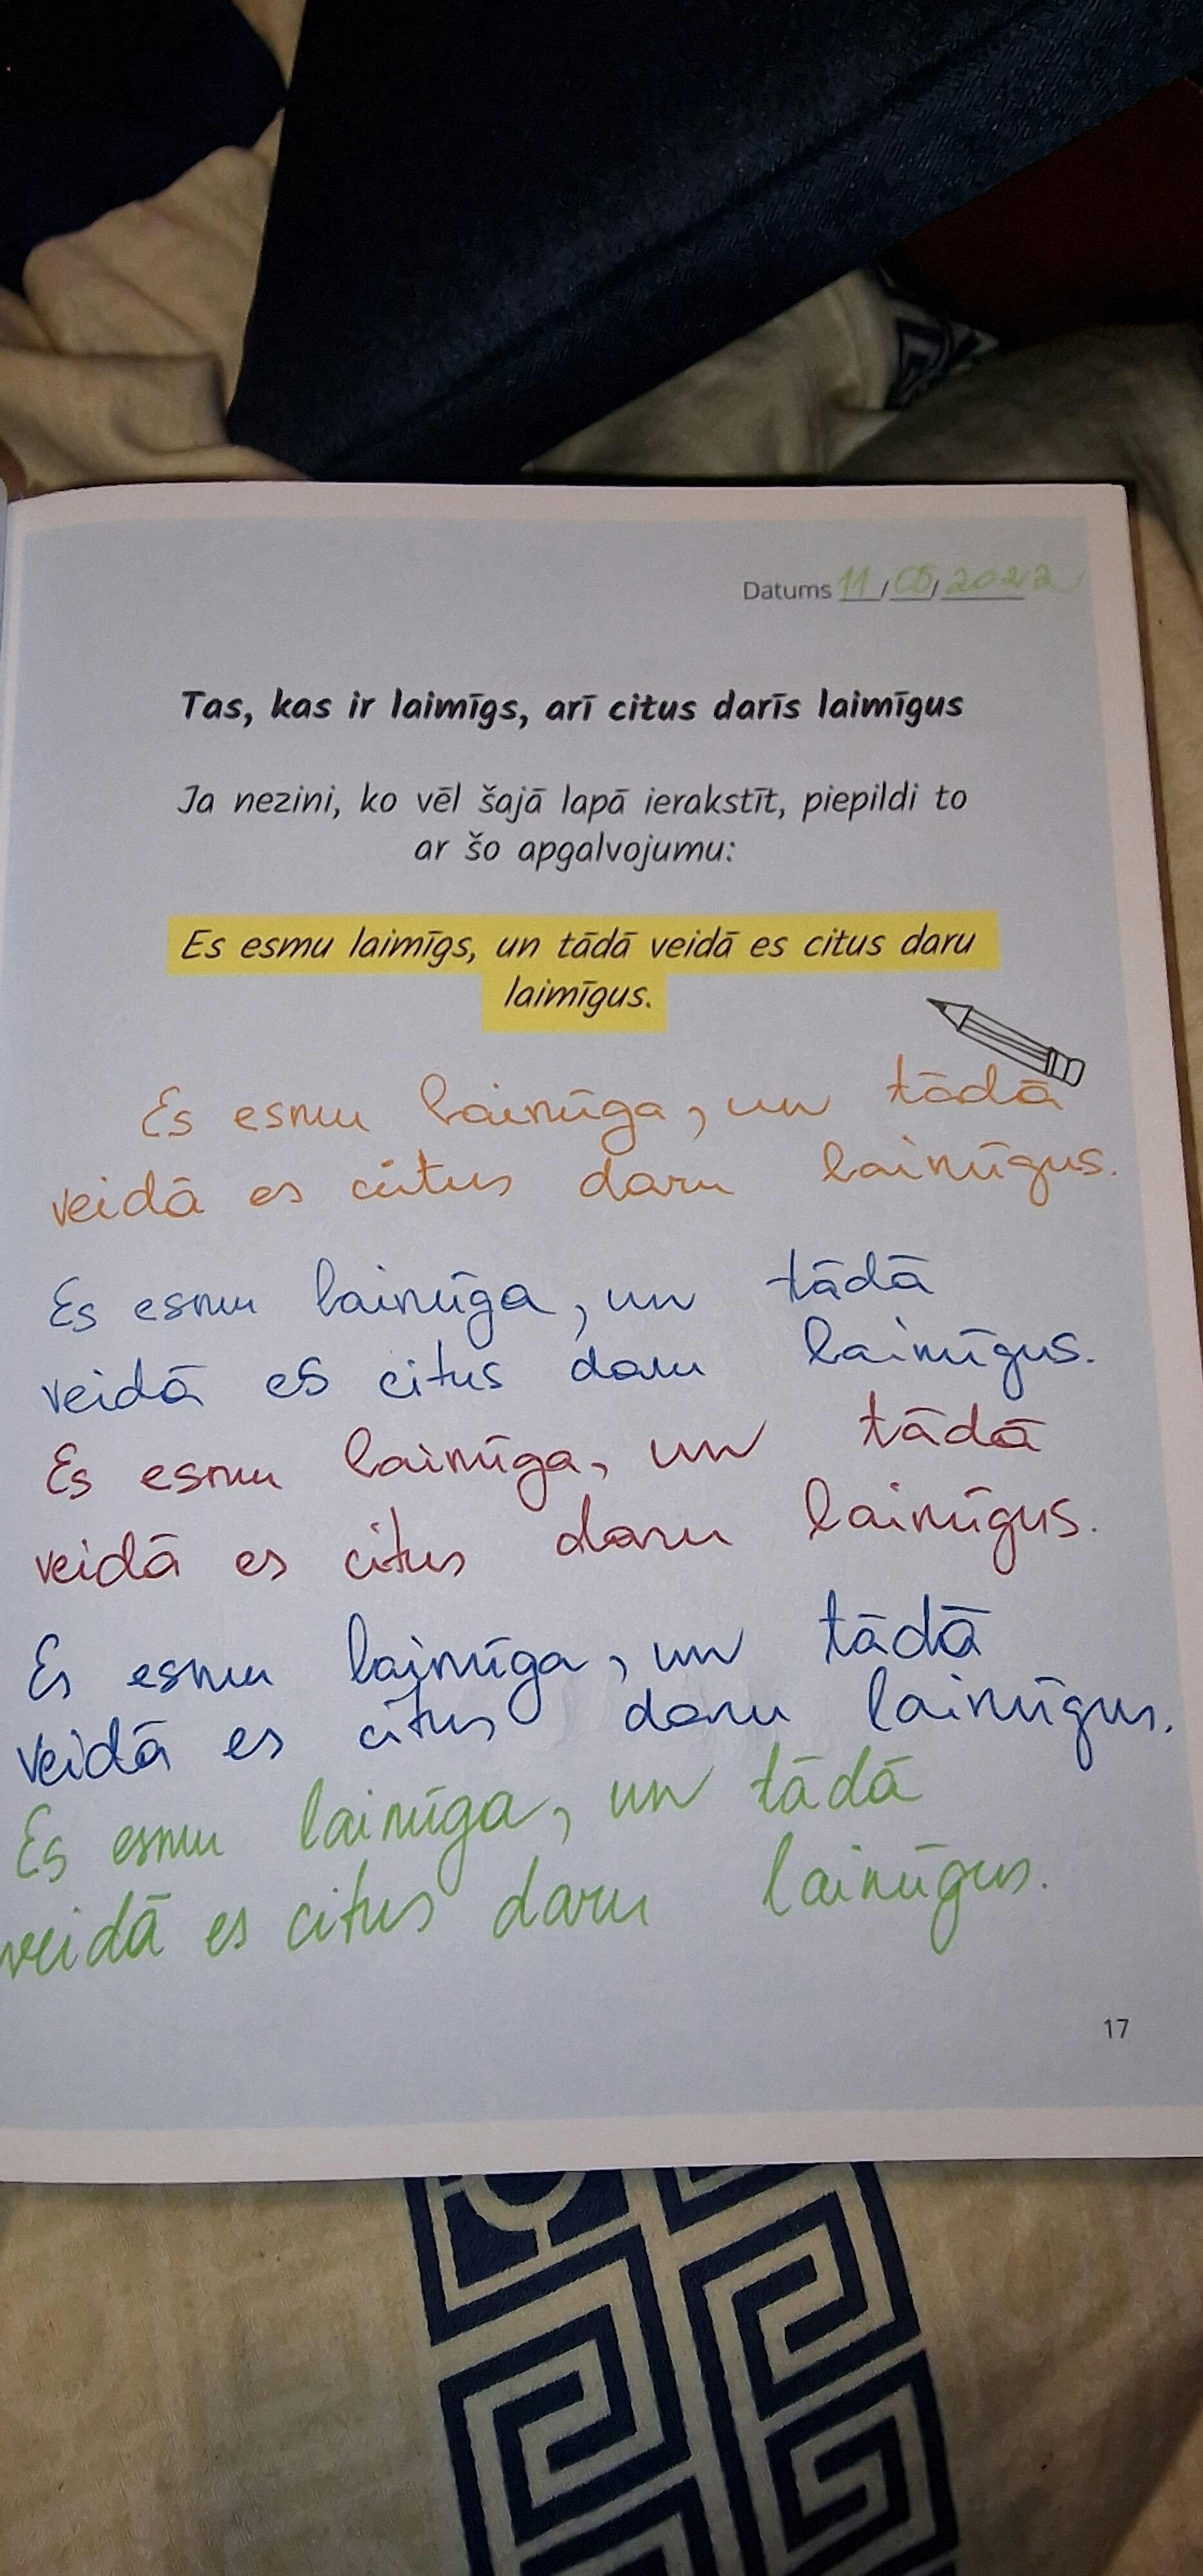 Datums 11/05/2022
Tas, kas ir laimīgs, arī citus darīs laimīgus
Ja nezini, ko vēl šajā lapā ierakstīt, piepildi to
ar šo apgalvojumu:
Es esmu laimīgs, un tādā veidā es citus daru
laimīgus.
Es esmu laimīga, un tādā
veidā es citus daru laimīgus.
Es esmu laimīga, un tādā
veidā es citus daru laimīgus.
Es esmu laimīga, un tādā
veidā es citus daru laimīgus.
Es esmu laimīga, un tādā
veidā es citus daru laimīgus.
Es esmu laimīga, un tādā
veidā es citus daru laimīgus.
17